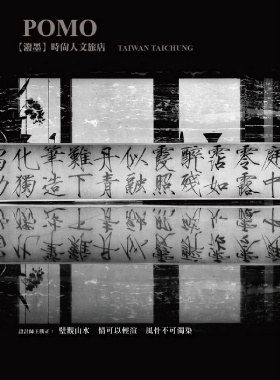 POMO
【潑墨】時尚人文旅店 TAIWAN TAICHUNG
零露
霑如
醉殘
霞照
似融
丹青
難下
筆造
化獨
設計師王 正： 壁觀山水 情可以輕渲 風骨不可濁染